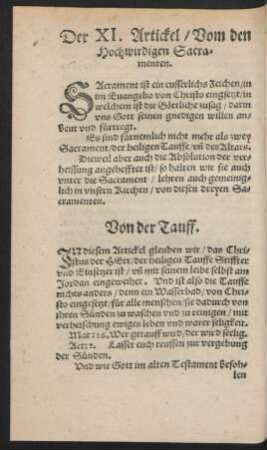 Der XI. Artickel / Vom den
Hochwirdigen Sacra-
menten.
SAcrament ist ein eusserlichs Zeichen / im
im Euangelio von Christo eingsetzt / in
welchem ist die Göttliche zusag / darin
vns Gott seinen gnedigen willen an-
beut vnd fürtregt.
Es sind fürnemlich nicht mehr als zwey
Sacrament / der heiligen Tauffe / vñ des Altars.
Dieweil aber auch die Absolution der ver-
heissung angehefftet ist / so halten wir sie auch
vnter die Sacrament / lehren auch gemeinig-
lich in vnsern Kirchen / von diesen dreyen Sa-
cramenten.
Von der Tauff.
IN diesem Artickel gleuben wir / das Chri-
stus der HErr / der heiligen Tauffe Stiffter
vnd Einsetzer ist / vñ mit seinem leibe selbst am
Jordan eingeweihet. Vnd ist also die Tauffe
nichts anders / denn ein Wasserbad / von Chri-
sto eingesetzt / für alle menschen / sie dadurch von
jhren Sünden zu waschen vnd zu reinigen / mit
verheischung ewiges leben vnd warer seligkeit.
Mar: 16. Wer getaufft wird / der wird seelig.
Act: 2. Lasset euch teuffen zur vergebung
der Sünden.
Vnd wie Gott im alten Testament befoh-
len